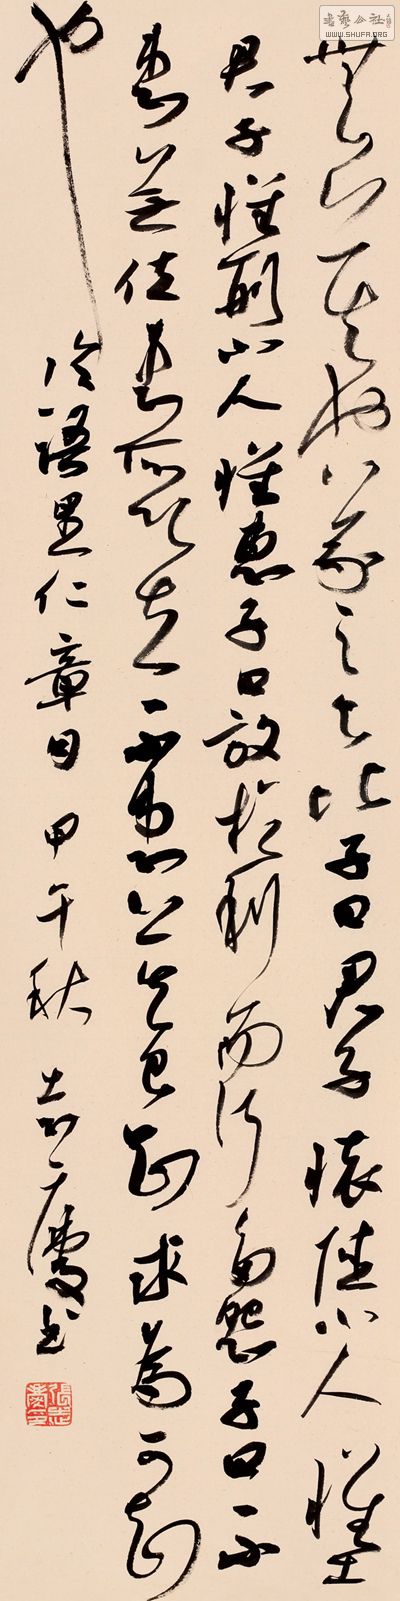 書藝公社
WWW.SHUFA.ORG
義之與比子曰君子懷德小人懷土
君子懷刑小人懷惠子曰放於利而行多怨子曰不
患無位患所以立不患莫己知求為可知
也
論語里仁章句 甲午秋 志慶書